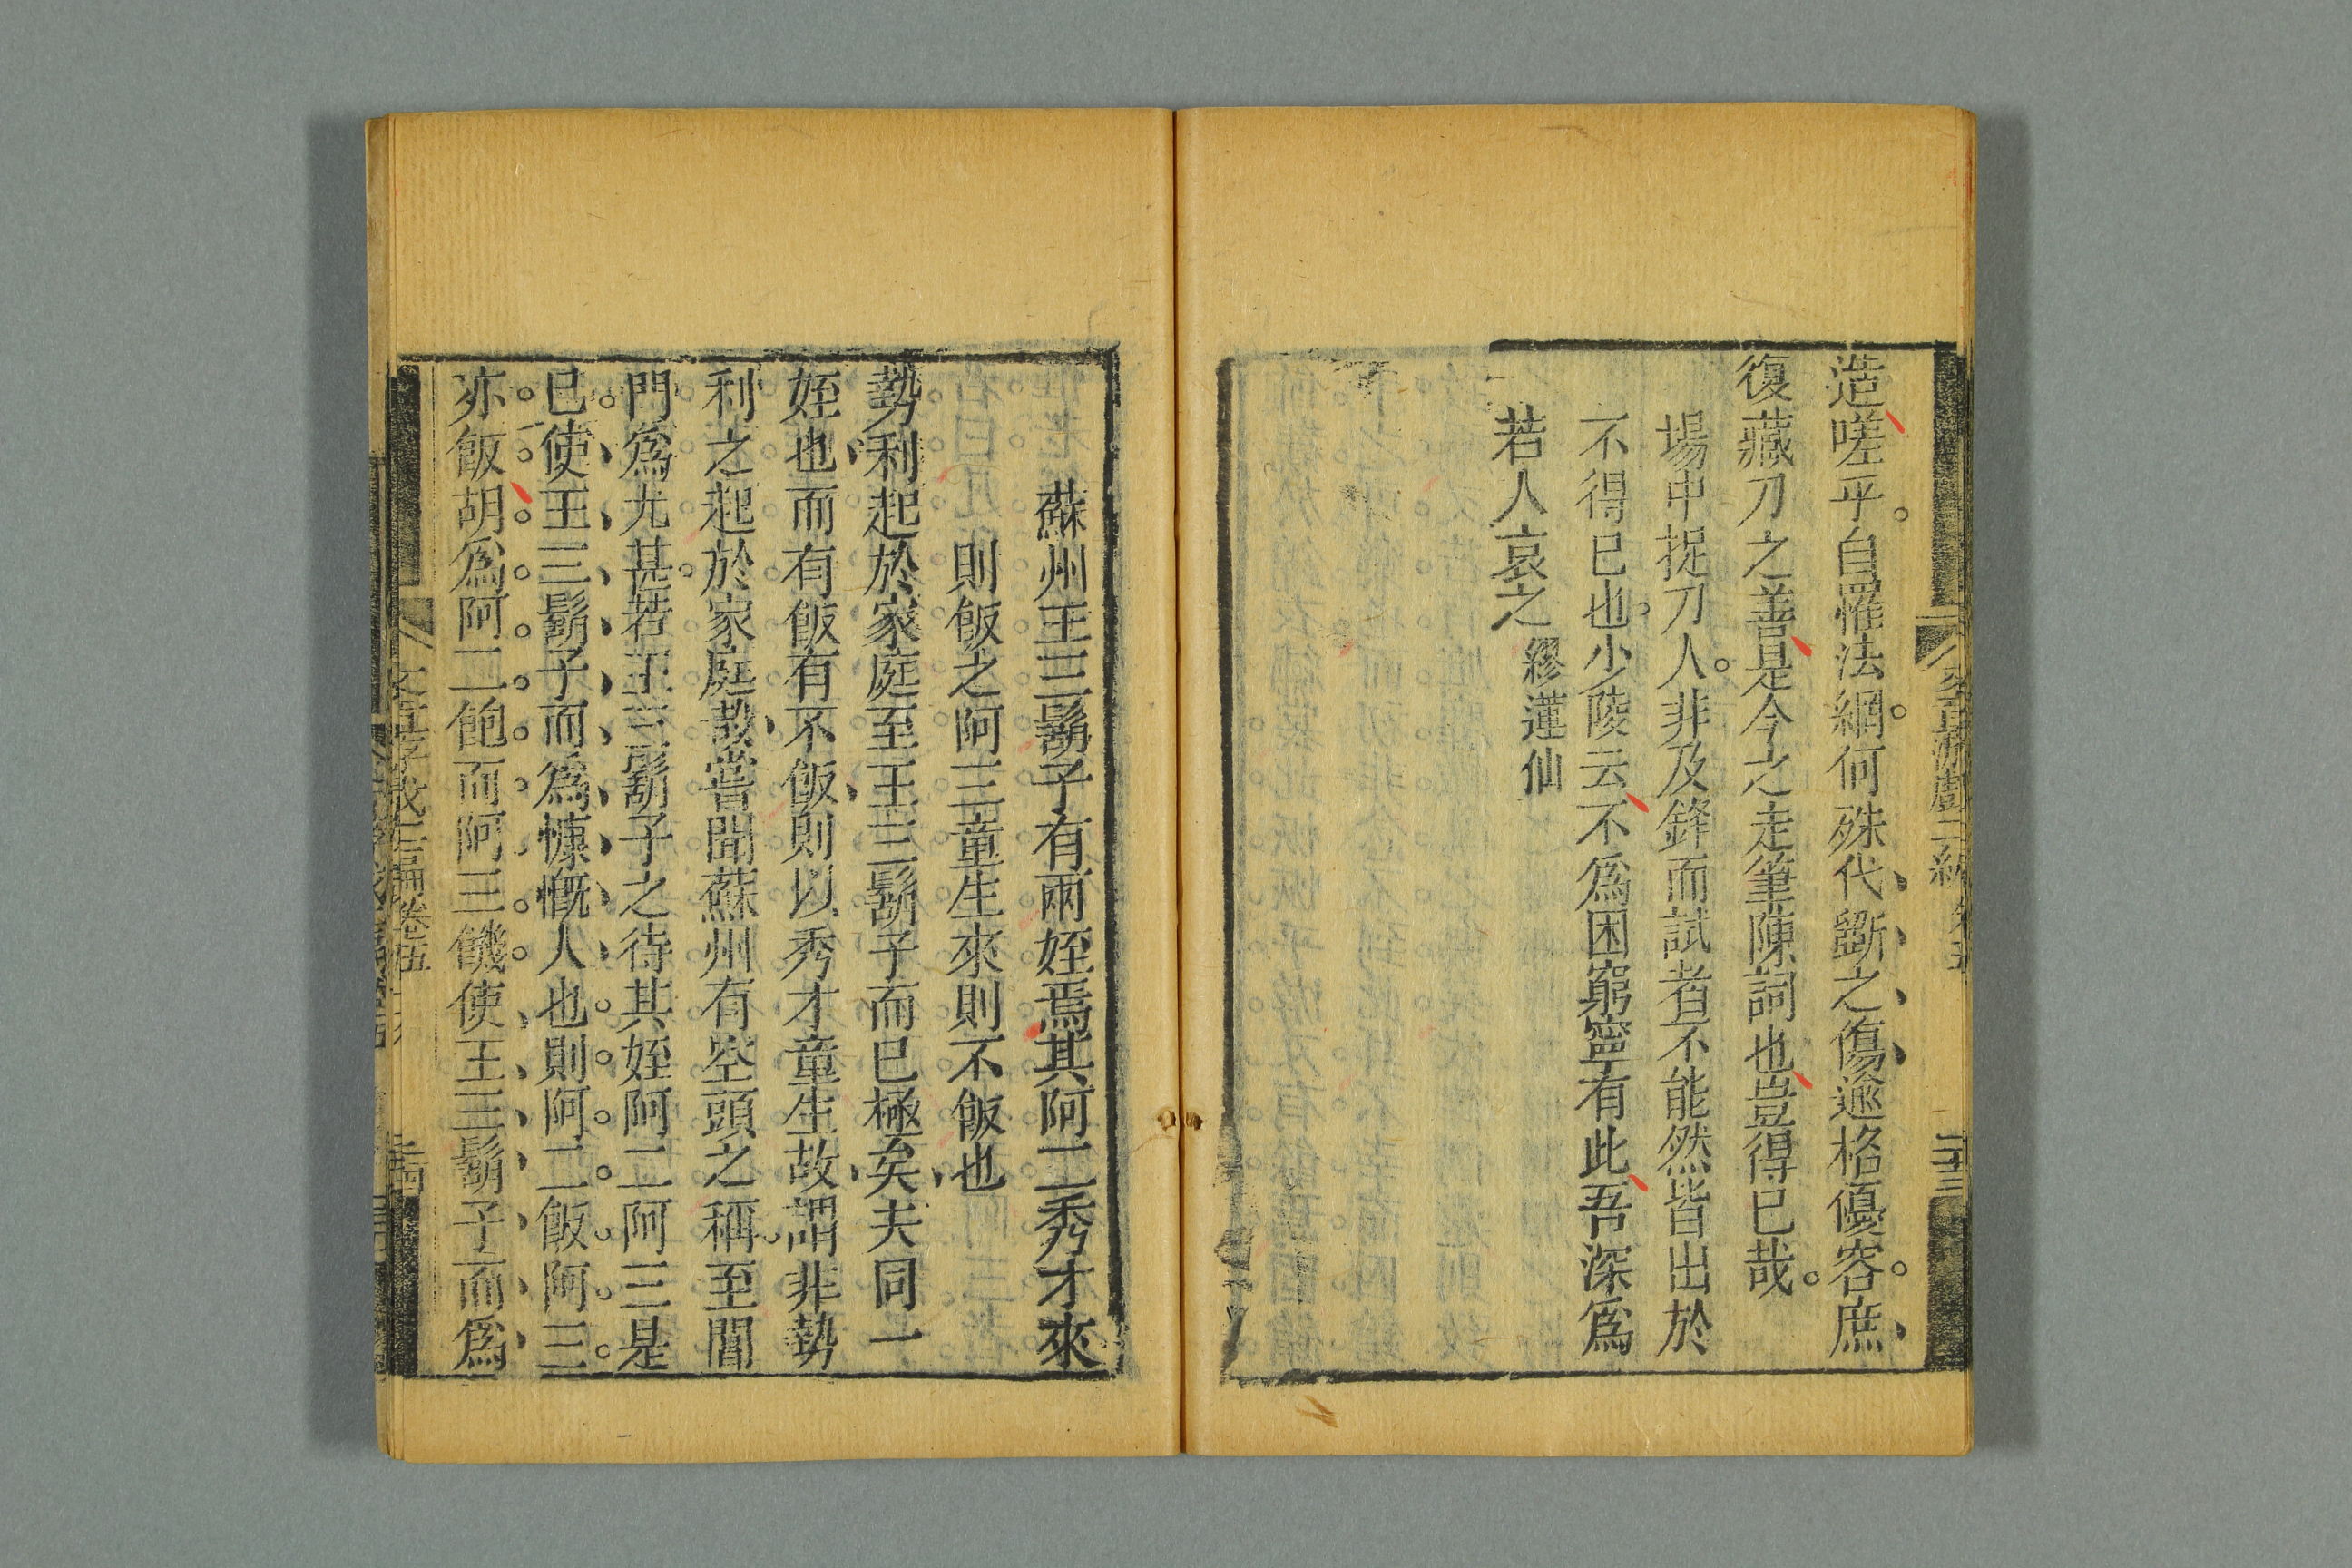 造嗟乎自罹法網何殊代斲之傷逾格優容庶
復藏刀之善是今之走筆陳詞也豈得已哉
場中捉刀人非及鋒而試者不能然皆出於
不得已也少陵云不爲困窮寧有此吾深爲
若人哀之 繆蓮仙
蘇州王三鬍子有兩姪焉其阿二秀才來
則飯之阿三童生來則不飯也
勢利起於家庭至王三鬍子而已極矣夫同一
姪也而有飯有不飯則以秀才童生故謂非勢
利之起於家庭哉嘗聞蘇州有空頭之稱至閶
門爲尤甚若王三鬍子之待其姪阿二阿三是
已使王三鬍子而爲慷慨人也則阿二飯阿三
亦飯胡爲阿二飽而阿三饑使王三鬍子而爲